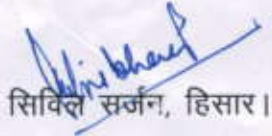 सिविल सर्जन, हिसार।